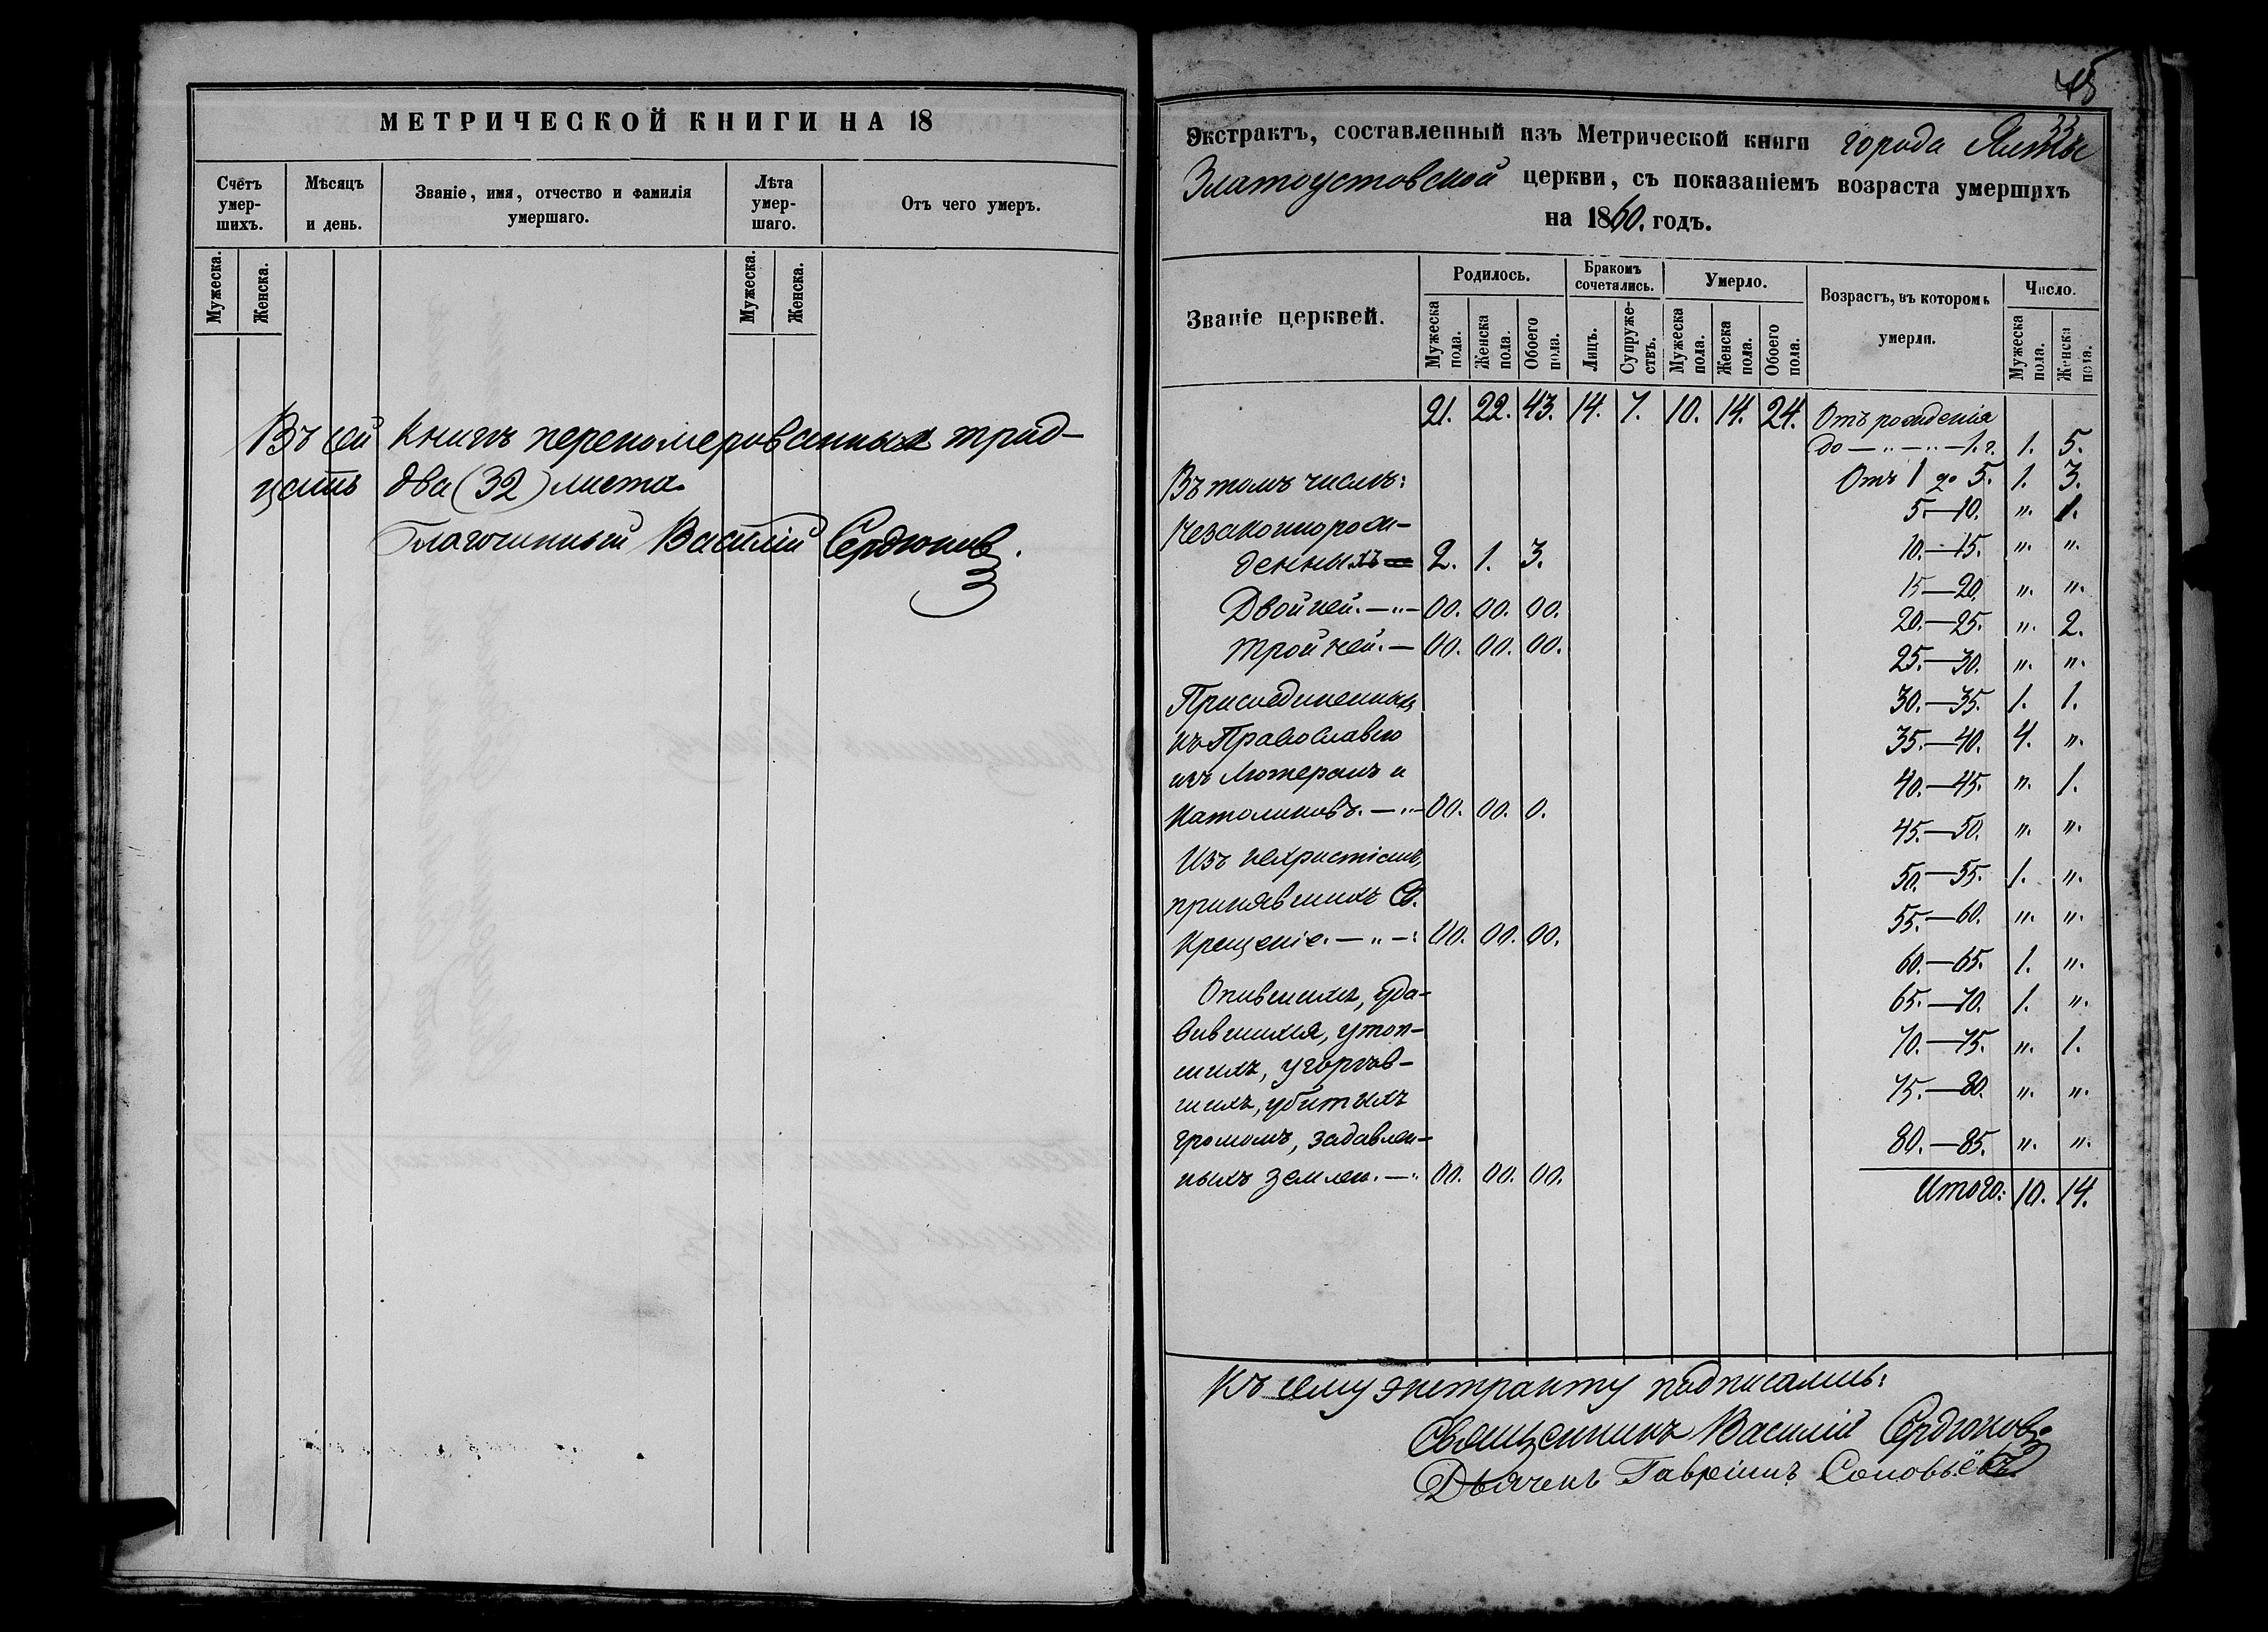 МЕТРИЧЕСКОЙ КНИГИ НА 18
Счетъ умер-шихъ. Мѣсяцъ и день. Званіе, имя, отчество и фамилія умершаго. Лѣта умер-шаго. Отъ чего умеръ.
Мужеска. Женска. Мужеска. Женска.
Въ сей книгѣ перенумерованныхъ трид-
цать два (32) листа.
Благочинный Василій Сердюковъ.
33
Экстрактъ, составленный изъ Метрической книги города Ялты
Златоустовской церкви, съ показаніемъ возраста умершихъ
на 1860. годъ.
Званіе церквей. Родилось. Бракомъ сочетались. Умерло. Возрастъ, въ которомъ умерли. Число.
Мужеска пола. Женска пола. Обоего пола. Лицъ. Супруже-ствъ. Мужеска пола. Женска пола. Обоего пола. Мужеска пола. Женска пола.
21. 22. 43. 14. 7. 10. 14. 24. Отъ рожденія
до — „ — „ — 1. г. 1. 5.
Въ томъ числѣ: Отъ 1 до 5. 1. 3.
5.—10. „. 1.
Незаконнорож-
10.—15. „. „.
денныхъ — 2. 1. 3.
15—20. „. „.
Двойней. — „ — 00. 00. 00.
20.—25. „. 2.
Тройней. — 00. 00. 00.
25.—30. „. „.
Присоединенныхъ 30.—35. 1. 1.
къ Православію 35.—40. 4. „.
изъ Лютеранъ и 40.—45. „. 1.
Католиковъ. — „ — 00. 00. 0.
45.—50. „. „.
Изъ нехристіанъ,
50.—55. 1. „.
принявшихъ Св.
55.—60. „. „.
Крещеніе. — „ — 00. 00. 00.
60.—65. 1. „.
Опившихъ, уда-
65.—70. 1. „.
вившихся, утоп-
70.—75. „. 1.
шихъ, угорѣв-
75.—80. „. „.
шихъ, убитыхъ
громомъ, задавлен-
80.—85. „. „.
ныхъ землею. — 00. 00. 00.
Итого: 10. 14.
Къ сему экстракту подписались:
Священникъ Василій Сердюковъ
Дьячекъ Гавріилъ Соловьёвъ